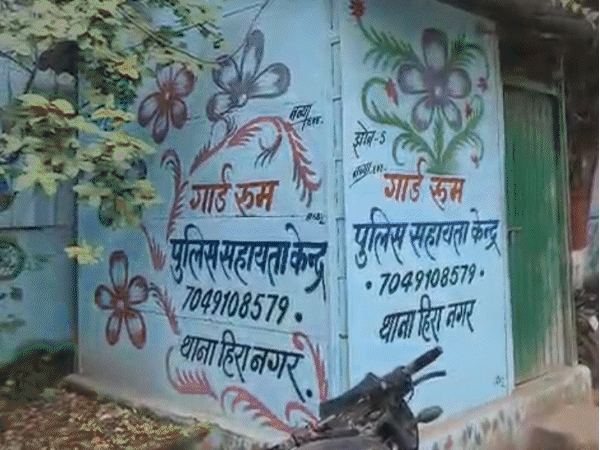 गार्ड रूम
पुलिस सहायता केन्द्र
7049108579.
थाना हिरा नगर.
झोन-5
गार्ड रूम
पुलिस सहायता केन्द्र
• 7049108579 •
थाना हिरा नगर